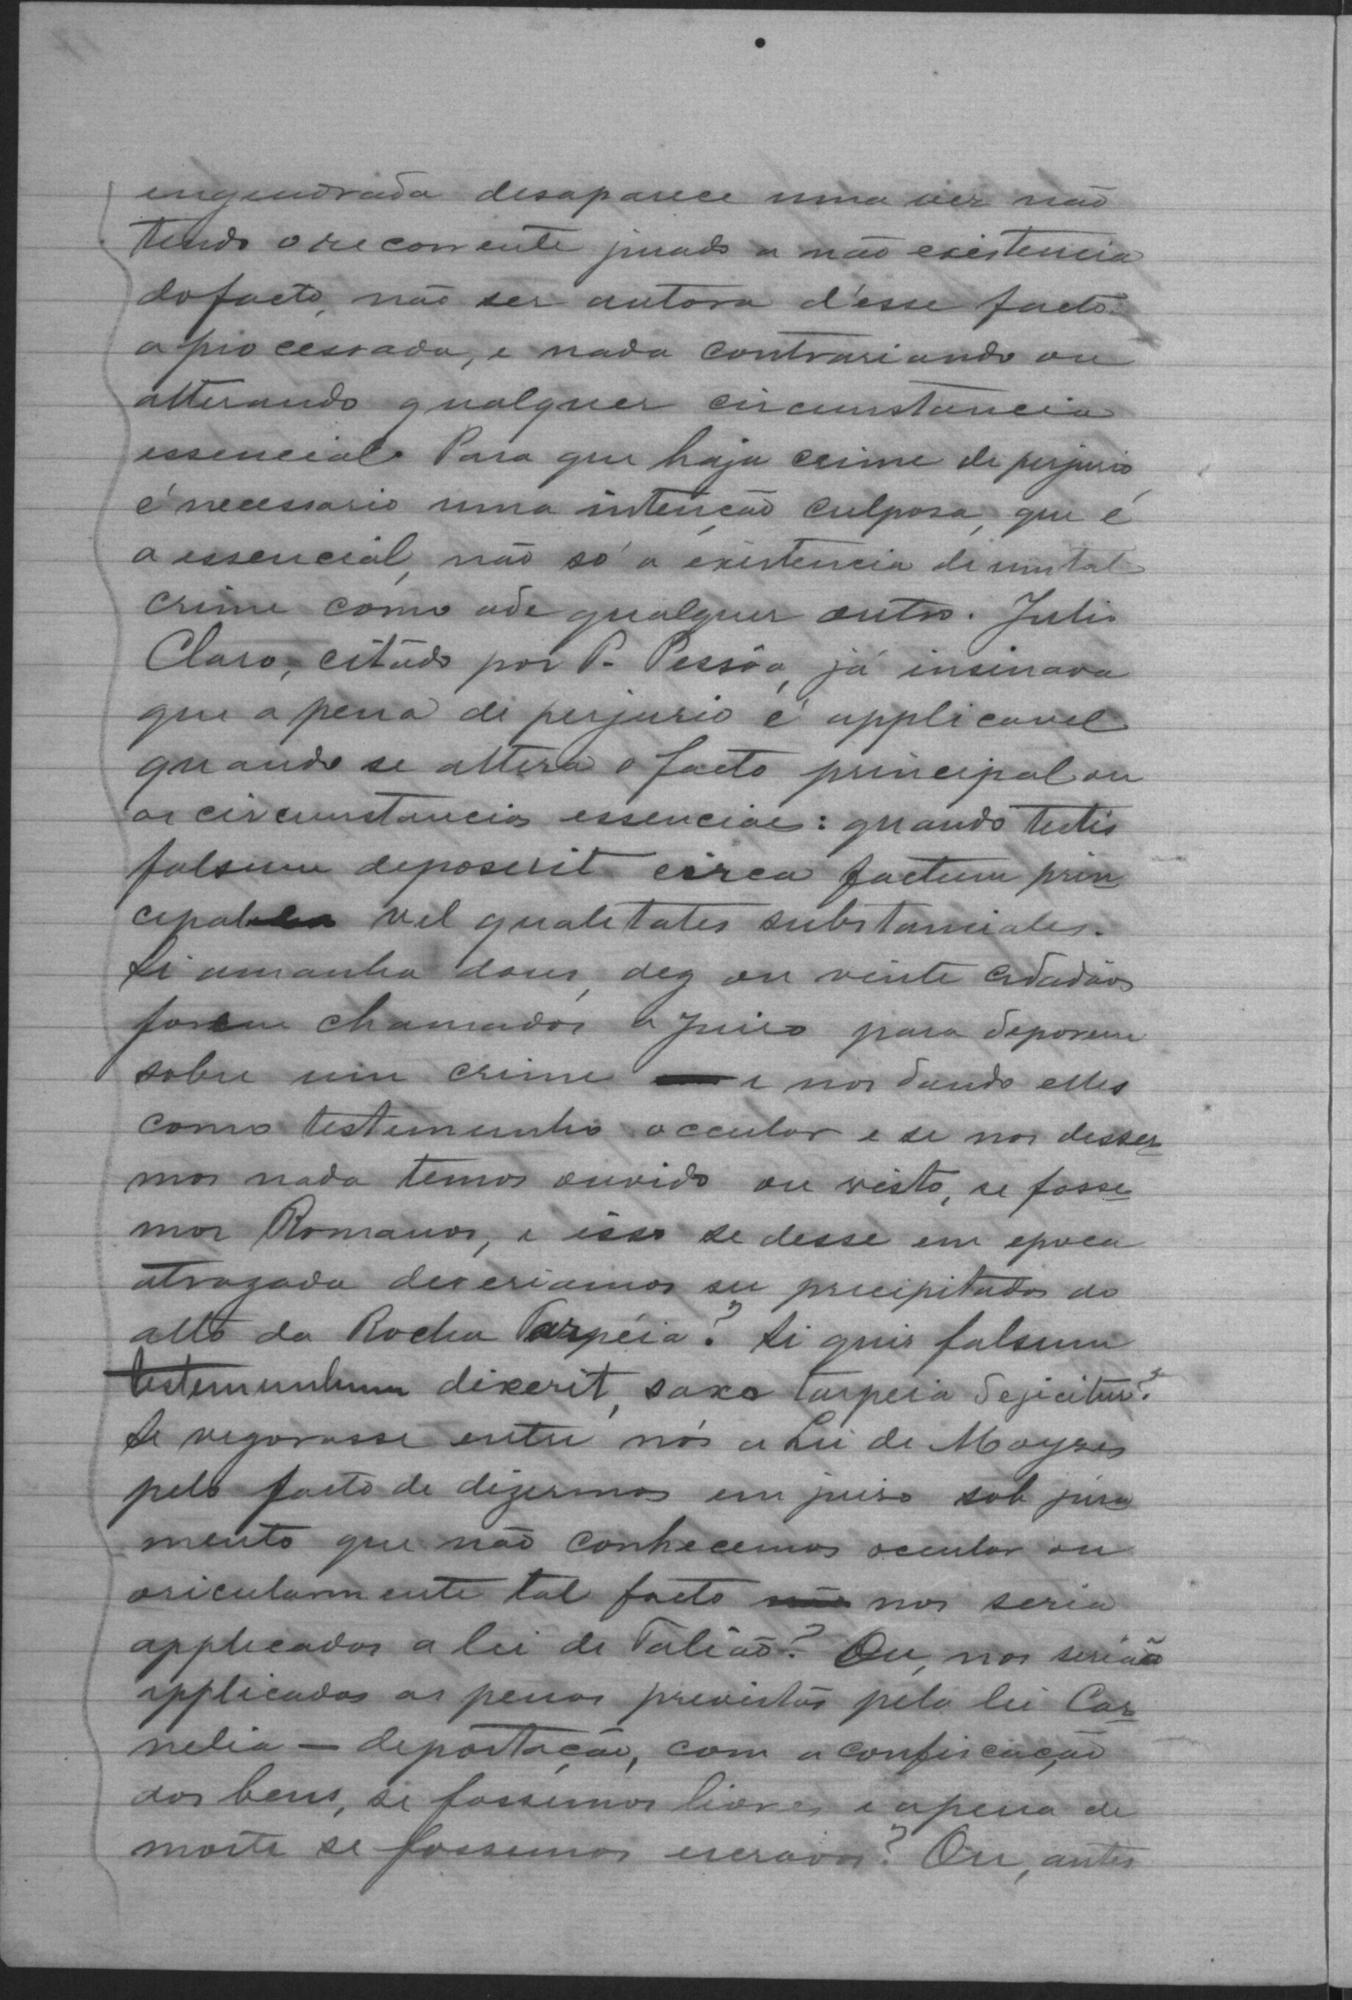 engendrada desaparece uma vez não
tendo o recorrente jurado a não existencia
do facto, não ser autora d'esse facto
a processada, e nada contrariando ou
alterando qualquer circumstancia
essencial. Para que haja crime de perjurio
é necessario uma intenção culposa, que é
a essencial, não só a existencia de um tal
crime como a de qualquer outro. Julio
Claro, citado por P. Pessôa, já insinava
que a pena de perjurio é applicavel
quando se altera o facto principal ou
as circumstancias essenciaes: quando testis
falsum deposerit circa factum prin
cipal vel qualitates substanciales.
Si amanha dous, dez ou vinte cidadãos
forem chamados a juizo para deporem
sobre um crime e nos dando elles
como testemunho occular e se nos desser
mos nada temos ouvido ou visto, se fosse
mos Romanos, e isso se desse em epoca
atrazada deveriamos ser precipitados do
alto da Rocha Tarpéia? Si quis falsum
testemunhum dixerit, saxo tarpeia dejicitur?
Se vigorasse entre nós a Lei de Moyses
pelo facto de dizermos em juizo sob jura
mento que não conhecemos occular ou
oricularmente tal facto nos seria
applicados a lei de Talião? Ou, nos serião
applicadas as penas previstas pela lei Cor
nelia — deportação, com a confiscação
dos bens, si fossemos livres e a pena de
morte se fossemos escravos? Ou, antes